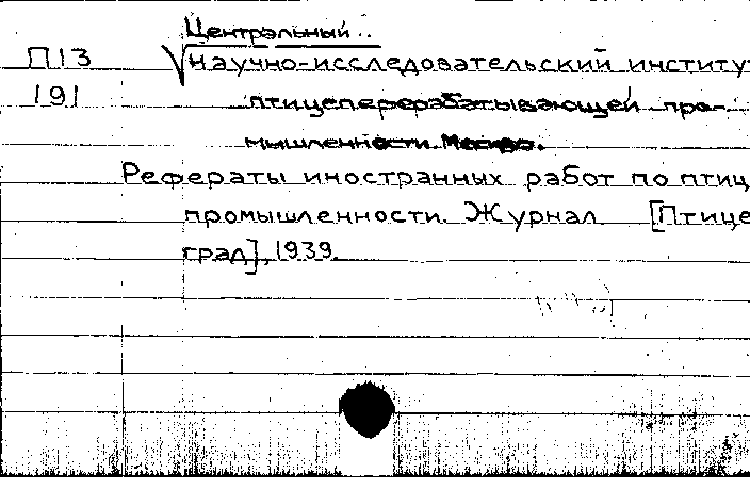 Центральный ..
П13 √Научно-исследовательский институ
191 птицеперерабатывающей про-
мышленности. Москва.
Рефераты иностранных работ по птиц
промышленности. Журнал [Птице
град], 1939.